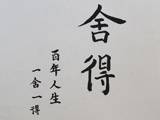 舍得
百年人生
一舍一得